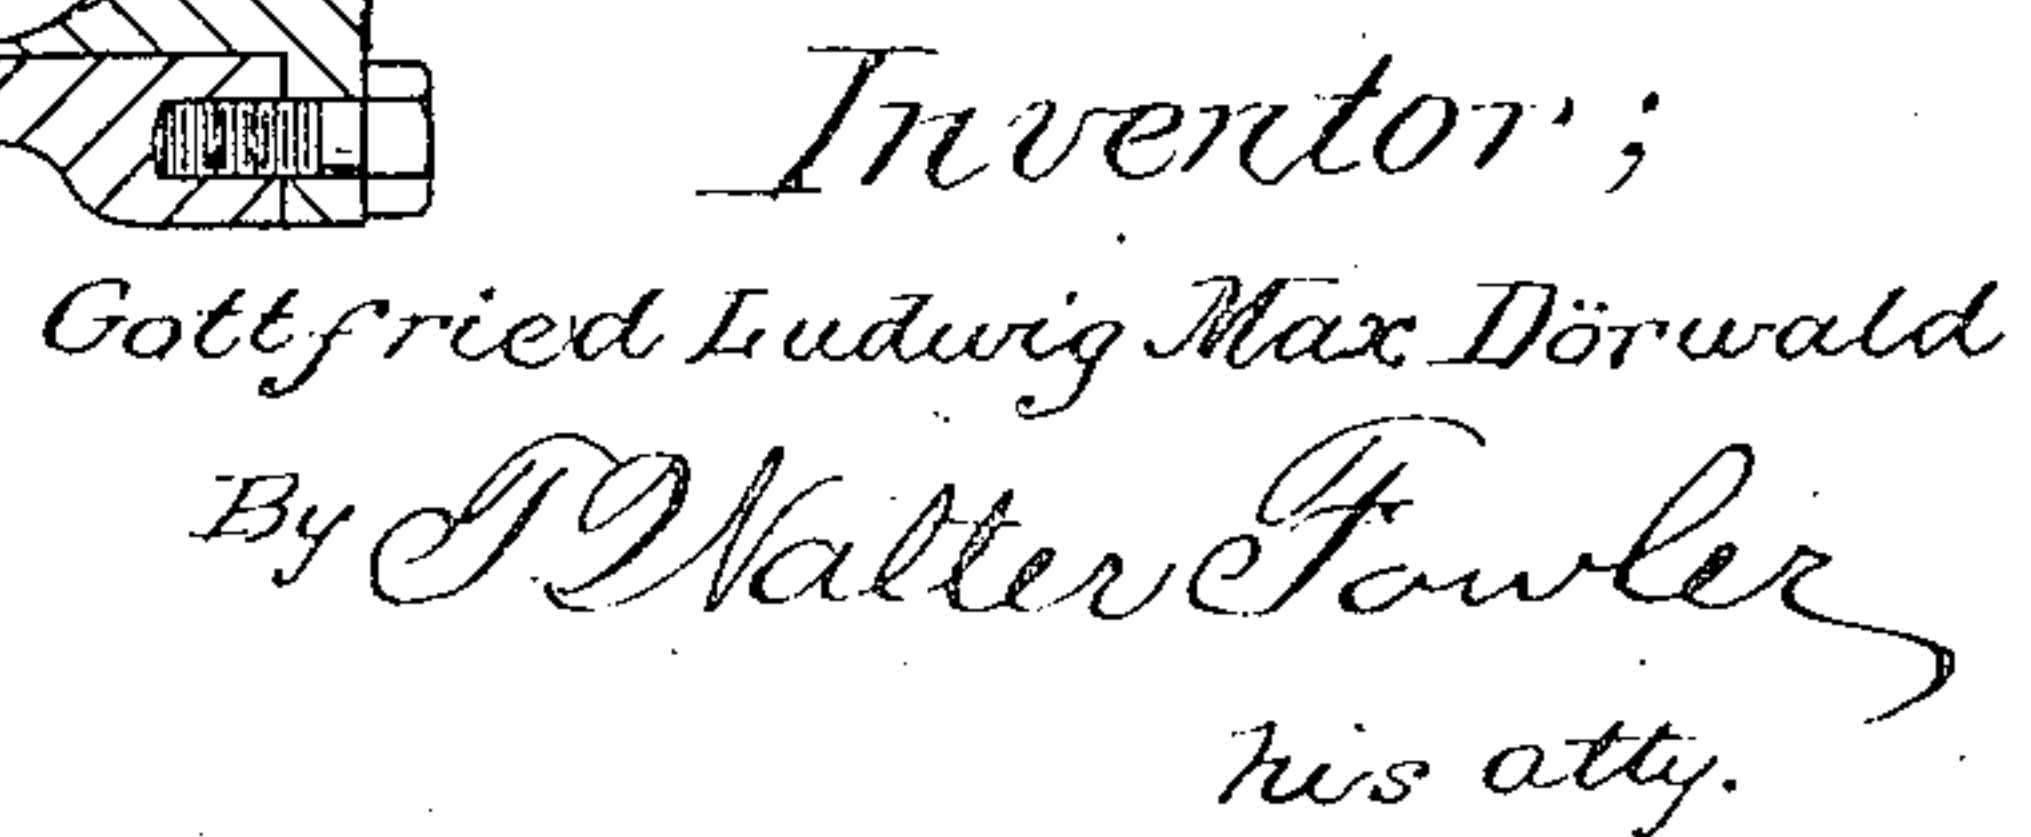 Inventor;
Gottfried Ludwig Max Dörwald
By T Walter Fowler
his atty.